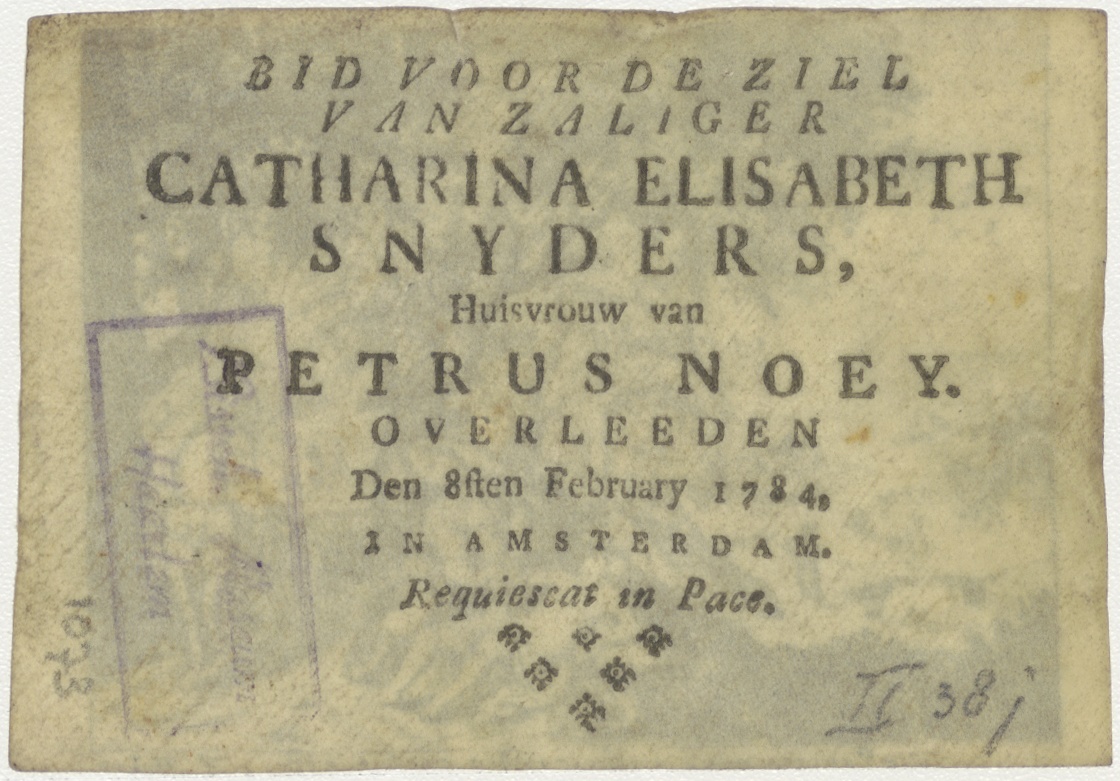 BID VOOR DE ZIEL
VAN ZALIGER
CATHARINA ELISABETH
SNYDERS,
Huisvrouw van
PETRUS NOEY.
OVERLEEDEN
Den 8ſten February 1784,
IN AMSTERDAM.
Requiescat in Pace.
II 38j
1073
Haarlem